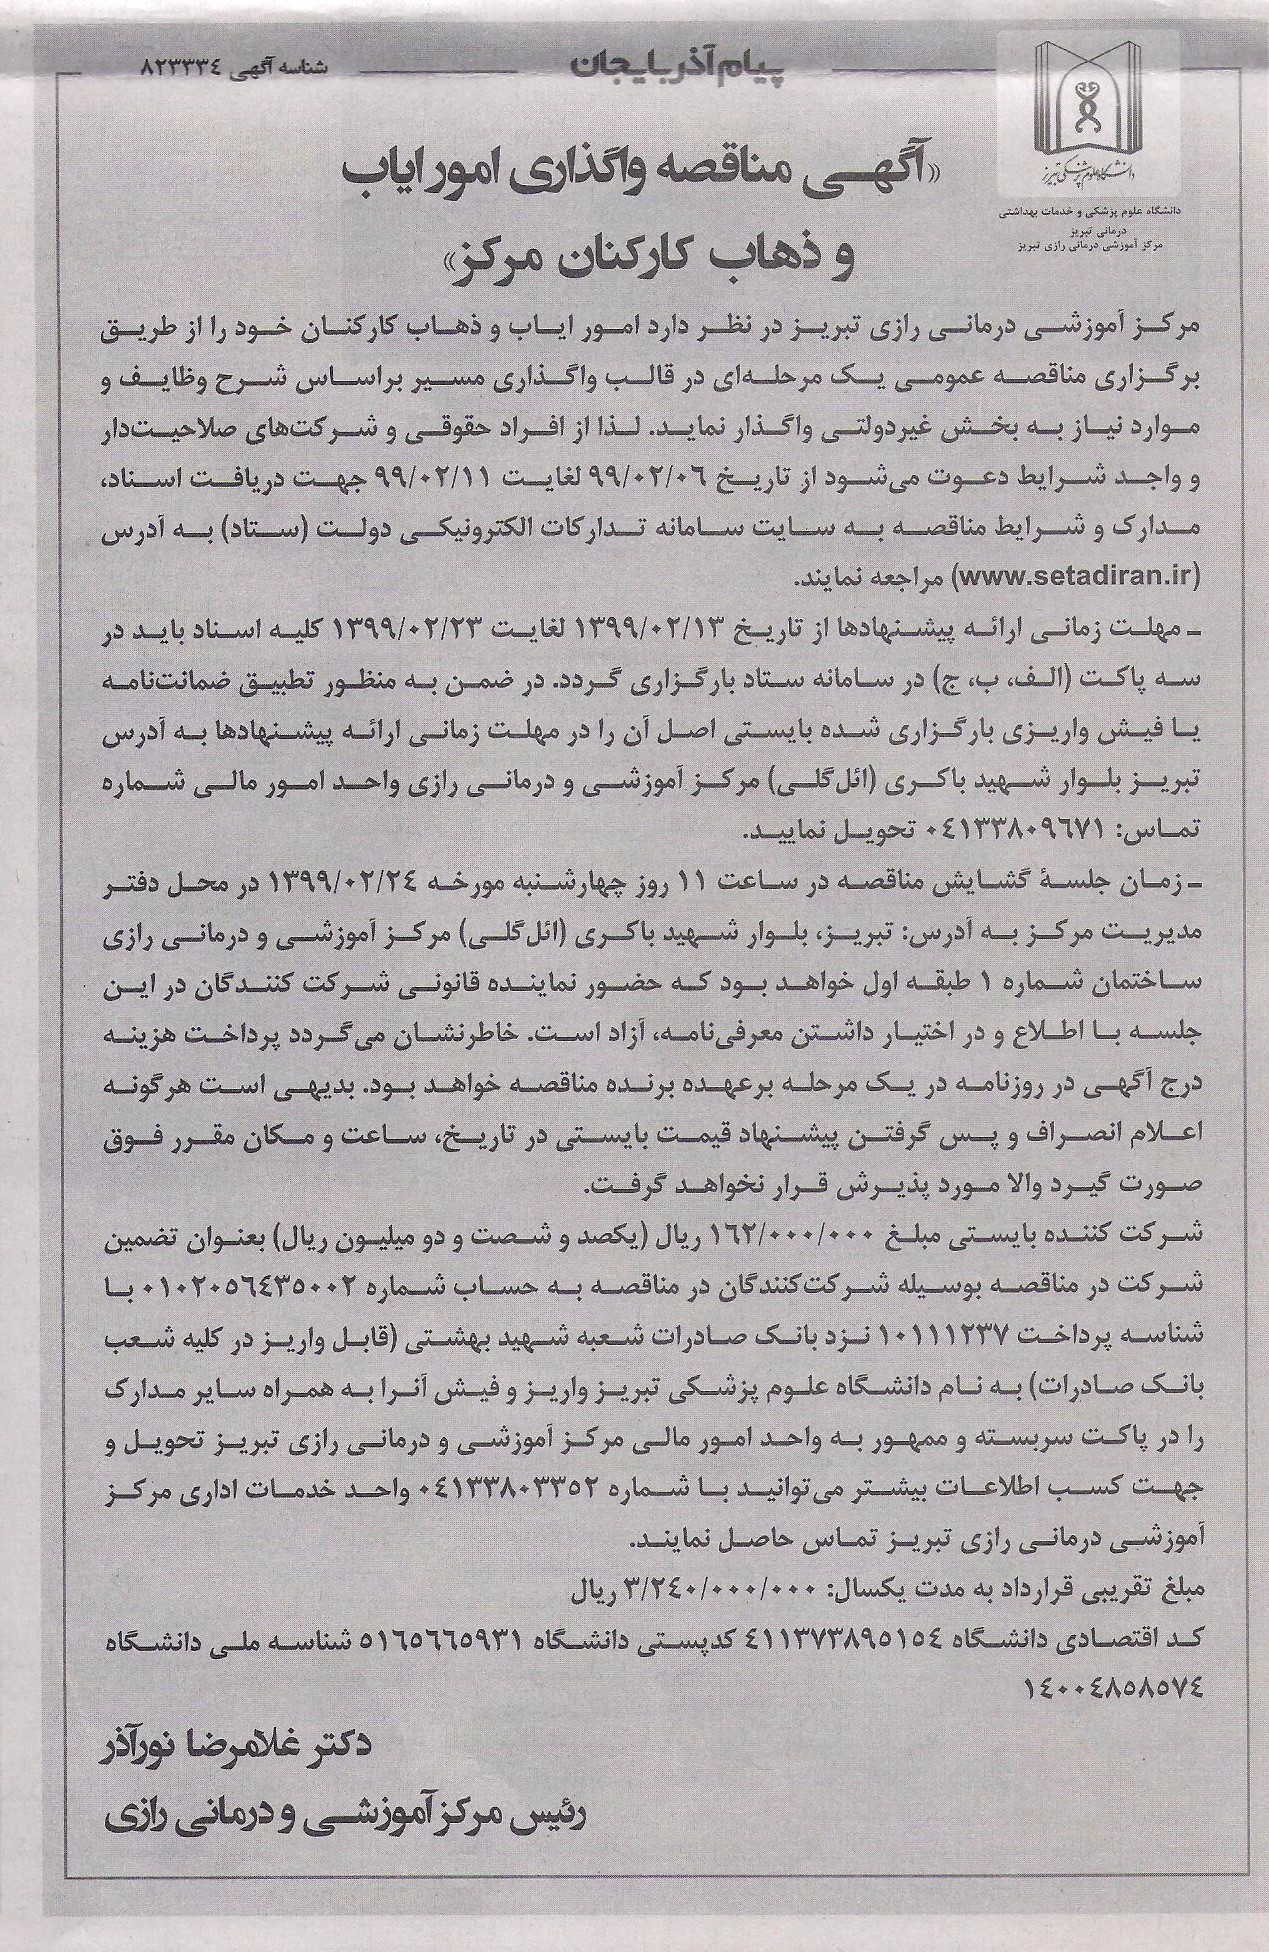 پیام آذربایجان
شناسه آگهی ۸۲۳۳۳۴
دانشگاه علوم پزشکی تبریز
دانشگاه علوم پزشکی و خدمات بهداشتی
درمانی تبریز
مرکز آموزشی درمانی رازی تبریز
«آگهی مناقصه واگذاری امور ایاب
و ذهاب کارکنان مرکز»
مرکز آموزشی درمانی رازی تبریز در نظر دارد امور ایاب و ذهاب کارکنان خود را از طریق
برگزاری مناقصه عمومی یک مرحله‌ای در قالب واگذاری مسیر براساس شرح وظایف و
موارد نیاز به بخش غیردولتی واگذار نماید. لذا از افراد حقوقی و شرکت‌های صلاحیت‌دار
و واجد شرایط دعوت می‌شود از تاریخ ۹۹/۰۲/۰۶ لغایت ۹۹/۰۲/۱۱ جهت دریافت اسناد،
مدارک و شرایط مناقصه به سایت سامانه تدارکات الکترونیکی دولت (ستاد) به آدرس
(www.setadiran.ir) مراجعه نمایند.
ـ مهلت زمانی ارائه پیشنهادها از تاریخ ۱۳۹۹/۰۲/۱۳ لغایت ۱۳۹۹/۰۲/۲۳ کلیه اسناد باید در
سه پاکت (الف، ب، ج) در سامانه ستاد بارگزاری گردد. در ضمن به منظور تطبیق ضمانت‌نامه
یا فیش واریزی بارگزاری شده بایستی اصل آن را در مهلت زمانی ارائه پیشنهادها به آدرس
تبریز بلوار شهید باکری (ائل‌گلی) مرکز آموزشی و درمانی رازی واحد امور مالی شماره
تماس: ۰۴۱۳۳۸۰۹۶۷۱ تحویل نمایید.
ـ زمان جلسهٔ گشایش مناقصه در ساعت ۱۱ روز چهارشنبه مورخه ۱۳۹۹/۰۲/۲۴ در محل دفتر
مدیریت مرکز به آدرس: تبریز، بلوار شهید باکری (ائل‌گلی) مرکز آموزشی و درمانی رازی
ساختمان شماره ۱ طبقه اول خواهد بود که حضور نماینده قانونی شرکت کنندگان در این
جلسه با اطلاع و در اختیار داشتن معرفی‌نامه، آزاد است. خاطرنشان می‌گردد پرداخت هزینه
درج آگهی در روزنامه در یک مرحله برعهده برنده مناقصه خواهد بود. بدیهی است هرگونه
اعلام انصراف و پس گرفتن پیشنهاد قیمت بایستی در تاریخ، ساعت و مکان مقرر فوق
صورت گیرد والا مورد پذیرش قرار نخواهد گرفت.
شرکت کننده بایستی مبلغ ۱۶۲/۰۰۰/۰۰۰ ریال (یکصد و شصت و دو میلیون ریال) بعنوان تضمین
شرکت در مناقصه بوسیله شرکت‌کنندگان در مناقصه به حساب شماره ۰۱۰۲۰۵۶۴۳۵۰۰۲ با
شناسه پرداخت ۱۰۱۱۱۲۳۷ نزد بانک صادرات شعبه شهید بهشتی (قابل واریز در کلیه شعب
بانک صادرات) به نام دانشگاه علوم پزشکی تبریز واریز و فیش آنرا به همراه سایر مدارک
را در پاکت سربسته و ممهور به واحد امور مالی مرکز آموزشی و درمانی رازی تبریز تحویل و
جهت کسب اطلاعات بیشتر می‌توانید با شماره ۰۴۱۳۳۸۰۳۳۵۲ واحد خدمات اداری مرکز
آموزشی درمانی رازی تبریز تماس حاصل نمایند.
مبلغ تقریبی قرارداد به مدت یکسال: ۳/۲۴۰/۰۰۰/۰۰۰ ریال
کد اقتصادی دانشگاه ۴۱۱۳۷۳۸۹۵۱۵۴ کدپستی دانشگاه ۵۱۶۵۶۶۵۹۳۱ شناسه ملی دانشگاه
۱۴۰۰۴۸۵۸۵۷۴
دکتر غلامرضا نورآذر
رئیس مرکز آموزشی و درمانی رازی